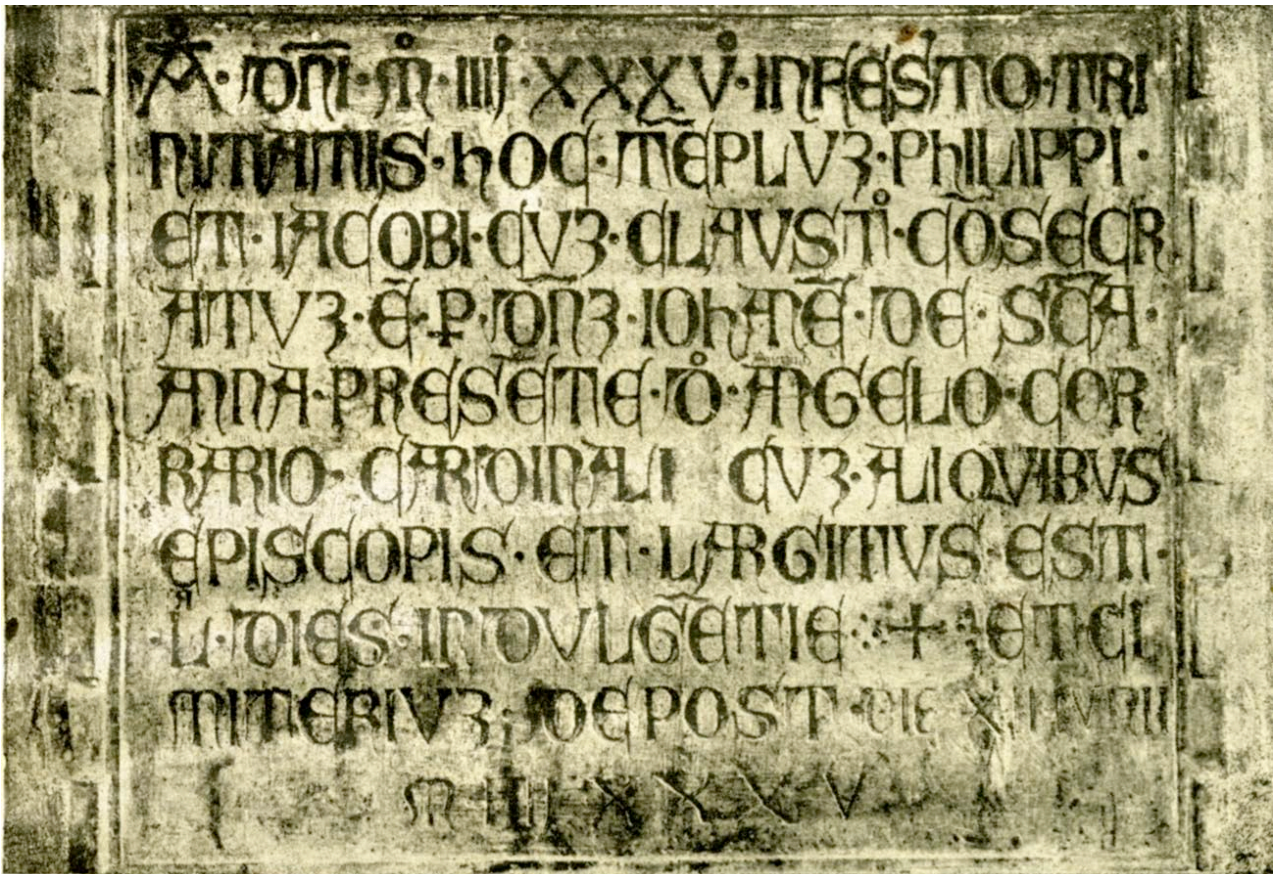 Å· DÑI· M̊· IIIJ· XXXV̊· IN FESTO· TRI
NITATIS· hOC· TE̅PLVȜ· PhILIPPI·
ET· IACOBI· CVȜ· CLAVSTͥ· CO̅SECR
ATVȜ· E̅· Ꝑ· DN̅Ȝ· IOhANE̅· DE· SC̅A·
ANNA· PRESE̅TE· D̊· ANGELO· COR
RARIO· CARDINALI CVȜ· ALIQVIBVS
EPISCOPIS· ET· LARGITVS· EST·
·L· DIES· INDVLGE̅TIE + ET· CI
MITERIVȜ· DEPOST· DIE
M IIII XXXV